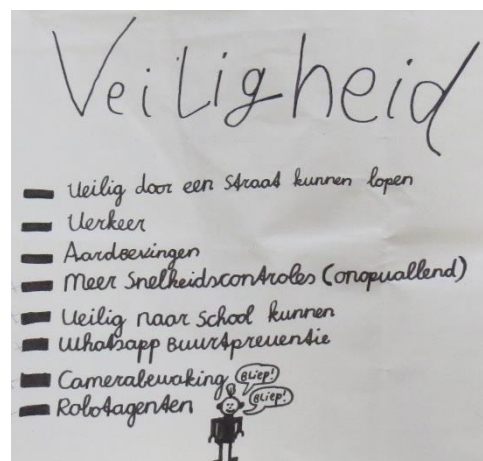 Veiligheid
Veilig door een straat kunnen lopen
Verkeer
Aardbevingen
Meer Snelheidscontroles (onopvallend)
Veilig naar school kunnen
Whatsapp Buurtpreventie
Camerabewaking
Bliep!
Robotagenten
Bliep!